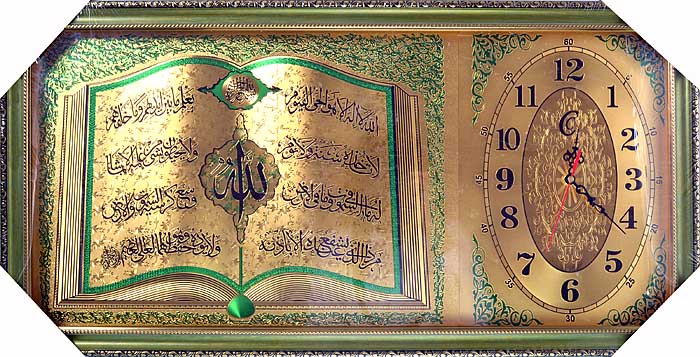 الله لا إله إلا هو الحي القيوم
لا تأخذه سنة ولا نوم
له ما في السموات وما في الأرض
من ذا الذي يشفع عنده إلا بإذنه
الله
يعلم ما بين أيديهم وما خلفهم
ولا يحيطون بشيء من علمه إلا بما شاء
وسع كرسيه السموات والأرض
ولا يؤده حفظهما وهو العلي العظيم
60
12
11 1
10 2
45 9 3 15
8 4
7 5
6
30